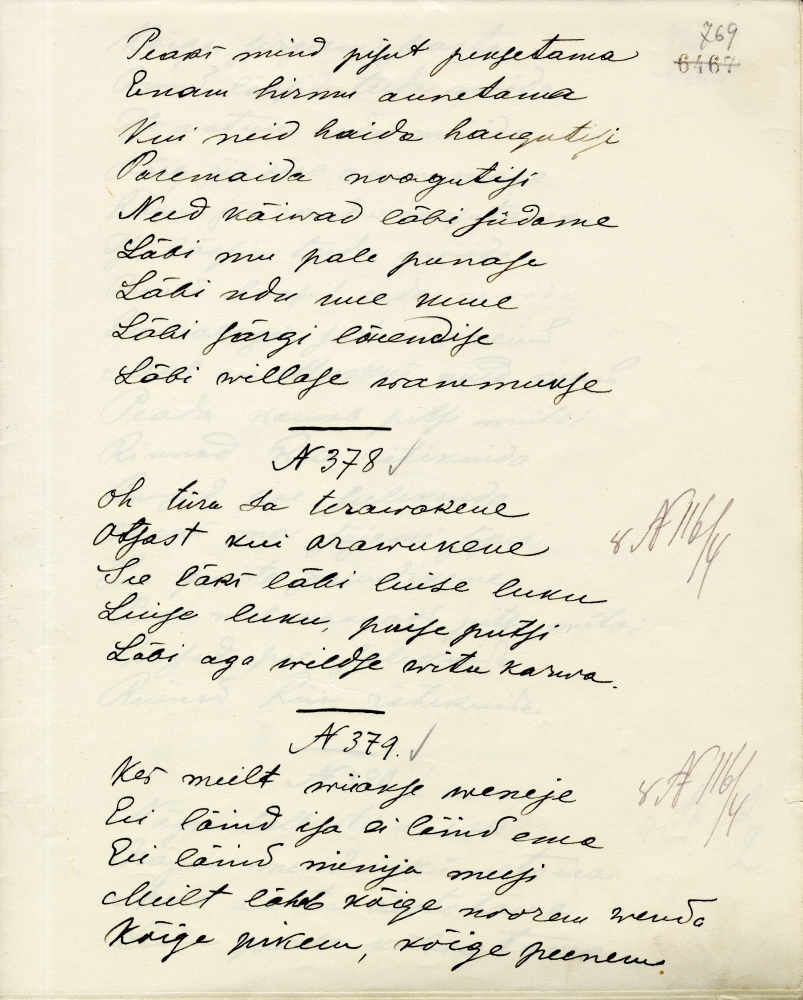 769
6467
Peaks mind pisut peksetama
Enam hirmu annetama
Kui neid haida haugutisi
Paremaida noogutisi
Need käiwad läbi südame
Läbi mu pale punase
Läbi udu uue kuue
Läbi särgi lõuendise
Läbi willase wammukse
N 378
Oh türa sa terawokene
Otsast kui orawukene
See läks läbi luise luku
Luise luku, puise putsi
Läbi aga wildse witu karwa.
8 N 116/4
N 379.
Kes meilt wiiakse weneje
Eei läind isa ei läind ema
Eei läind minija meesi
Meilt läheb kõige noorem wenda
Kõige pikem, kõige peenem
8 N 116/4